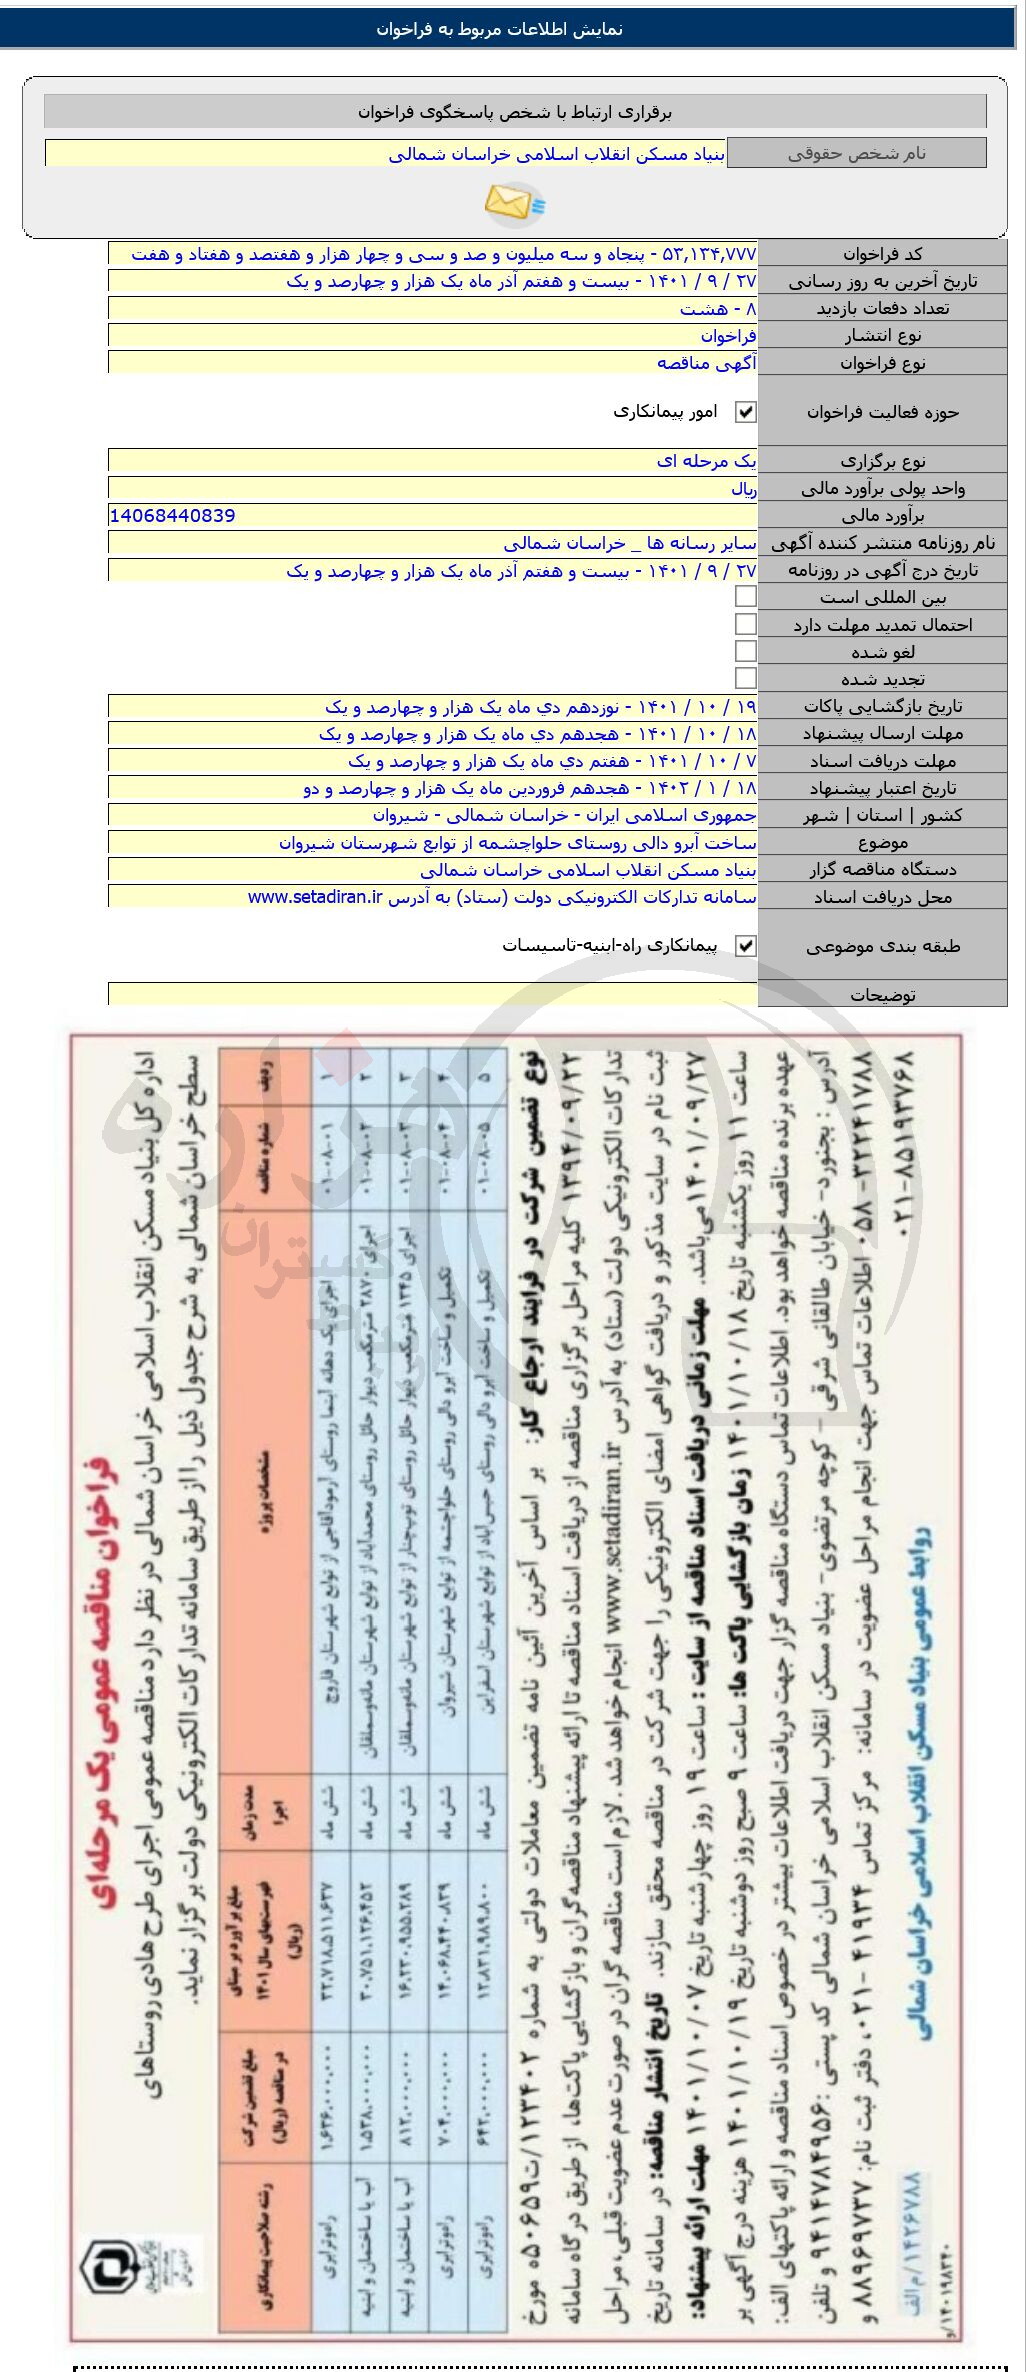 نمایش اطلاعات مربوط به فراخوان
برقراری ارتباط با شخص پاسخگوی فراخوان
نام شخص حقوقی
بنیاد مسکن انقلاب اسلامی خراسان شمالی
کد فراخوان
۵۳,۱۳۴,۷۷۷ - پنجاه و سه میلیون و صد و سی و چهار هزار و هفتصد و هفتاد و هفت
تاریخ آخرین به روز رسانی
۲۷ / ۹ / ۱۴۰۱ - بیست و هفتم آذر ماه یک هزار و چهارصد و یک
تعداد دفعات بازدید
۸ - هشت
نوع انتشار
فراخوان
نوع فراخوان
آگهی مناقصه
حوزه فعالیت فراخوان
امور پیمانکاری
نوع برگزاری
یک مرحله ای
واحد پولی برآورد مالی
ریال
برآورد مالی
14068440839
نام روزنامه منتشر کننده آگهی
سایر رسانه ها _ خراسان شمالی
تاریخ درج آگهی در روزنامه
۲۷ / ۹ / ۱۴۰۱ - بیست و هفتم آذر ماه یک هزار و چهارصد و یک
بین المللی است
احتمال تمدید مهلت دارد
لغو شده
تجدید شده
تاریخ بازگشایی پاکات
۱۹ / ۱۰ / ۱۴۰۱ - نوزدهم دي ماه یک هزار و چهارصد و یک
مهلت ارسال پیشنهاد
۱۸ / ۱۰ / ۱۴۰۱ - هجدهم دي ماه یک هزار و چهارصد و یک
مهلت دریافت اسناد
۷ / ۱۰ / ۱۴۰۱ - هفتم دي ماه یک هزار و چهارصد و یک
تاریخ اعتبار پیشنهاد
۱۸ / ۱ / ۱۴۰۲ - هجدهم فروردین ماه یک هزار و چهارصد و دو
کشور | استان | شهر
جمهوری اسلامی ایران - خراسان شمالی - شیروان
موضوع
ساخت آبرو دالی روستای حلواچشمه از توابع شهرستان شیروان
دستگاه مناقصه گزار
بنیاد مسکن انقلاب اسلامی خراسان شمالی
محل دریافت اسناد
سامانه تدارکات الکترونیکی دولت (ستاد) به آدرس www.setadiran.ir
طبقه بندی موضوعی
پیمانکاری راه-ابنیه-تاسیسات
توضیحات
فراخوان مناقصه عمومی یک مرحله‌ای
اداره کل بنیاد مسکن انقلاب اسلامی خراسان شمالی در نظر دارد مناقصه عمومی اجرای طرح هادی روستاهای
سطح خراسان شمالی به شرح جدول ذیل را از طریق سامانه تدارکات الکترونیکی دولت برگزار نماید.
ردیف شماره مناقصه مشخصات پروژه مدت زمان اجرا مبلغ برآورد بر مبنای فهرستبهای سال ۱۴۰۱ (ریال) مبلغ تضمین شرکت در مناقصه (ریال) رشته صلاحیت پیمانکاری
۱ ۰۱-۰۸-۰۱ اجرای یک دهانه آبنما روستای آرمودآقاجی از توابع شهرستان فاروج شش ماه ۳۲.۷۱۸.۵۱۱.۶۳۷ ۱.۶۳۶.۰۰۰.۰۰۰ راه‌وترابری
۲ ۰۱-۰۸-۰۲ اجرای ۲۸۷۰ مترمکعب دیوار حائل روستای محمدآباد از توابع شهرستان مانه‌وسملقان شش ماه ۳۰.۷۵۱.۱۲۶.۴۵۲ ۱.۵۳۸.۰۰۰.۰۰۰ آب یا ساختمان و ابنیه
۳ ۰۱-۰۸-۰۳ اجرای ۱۳۴۵ مترمکعب دیوار حائل روستای توپ‌چنار از توابع شهرستان مانه‌وسملقان شش ماه ۱۶.۲۳۰.۹۵۵.۲۸۹ ۸۱۲.۰۰۰.۰۰۰ آب یا ساختمان و ابنیه
۴ ۰۱-۰۸-۰۴ تکمیل و ساخت آبرو دالی روستای حلواچشمه از توابع شهرستان شیروان شش ماه ۱۴.۰۶۸.۴۴۰.۸۳۹ ۷۰۴.۰۰۰.۰۰۰ راه‌وترابری
۵ ۰۱-۰۸-۰۵ تکمیل و ساخت آبرو دالی روستای حسن‌آباد از توابع شهرستان اسفراین شش ماه ۱۲.۸۳۱.۹۸۹.۸۰۰ ۶۴۲.۰۰۰.۰۰۰ راه‌وترابری
نوع تضمین شرکت در فرایند ارجاع کار: بر اساس آخرین آئین نامه تضمین معاملات دولتی به شماره ۱۲۳۴۰۲/ت۵۰۶۵۹ه مورخ
۱۳۹۴/۰۹/۲۲ کلیه مراحل برگزاری مناقصه از دریافت اسناد مناقصه تا ارائه پیشنهاد مناقصه‌گران و بازگشایی پاکت‌ها، از طریق درگاه سامانه
تدارکات الکترونیکی دولت (ستاد) به آدرس www.setadiran.ir انجام خواهد شد. لازم است مناقصه گران در صورت عدم عضویت قبلی، مراحل
ثبت نام در سایت مذکور و دریافت گواهی امضای الکترونیکی را جهت شرکت در مناقصه محقق سازند. تاریخ انتشار مناقصه: در سامانه تاریخ
۱۴۰۱/۰۹/۲۷ می‌باشد. مهلت زمانی دریافت اسناد مناقصه از سایت : ساعت ۱۹ روز چهارشنبه تاریخ ۱۴۰۱/۱۰/۰۷ مهلت ارائه پیشنهاد:
ساعت ۱۱ روز یکشنبه تاریخ ۱۴۰۱/۱۰/۱۸ زمان بازگشایی پاکت ها: ساعت ۹ صبح روز دوشنبه تاریخ ۱۴۰۱/۱۰/۱۹ هزینه درج آگهی بر
عهده برنده مناقصه خواهد بود. اطلاعات تماس دستگاه مناقصه گزار جهت دریافت اطلاعات بیشتر در خصوص اسناد مناقصه و ارائه پاکتهای الف:
آدرس : بجنورد- خیابان طالقانی شرقی - کوچه مرتضوی- بنیاد مسکن انقلاب اسلامی خراسان شمالی کد پستی :۹۴۱۴۷۸۴۹۵۶ و تلفن
۳۲۲۴۱۷۸۸-۰۵۸ اطلاعات تماس جهت انجام مراحل عضویت در سامانه: مرکز تماس ۴۱۹۳۴-۰۲۱، دفتر ثبت نام: ۸۸۹۶۹۷۳۷ و
۰۲۱-۸۵۱۹۳۷۶۸
روابط عمومی بنیاد مسکن انقلاب اسلامی خراسان شمالی
۱۴۲۶۷۸۸/م الف
۱۴۰۱۹۸۳۴۰/و